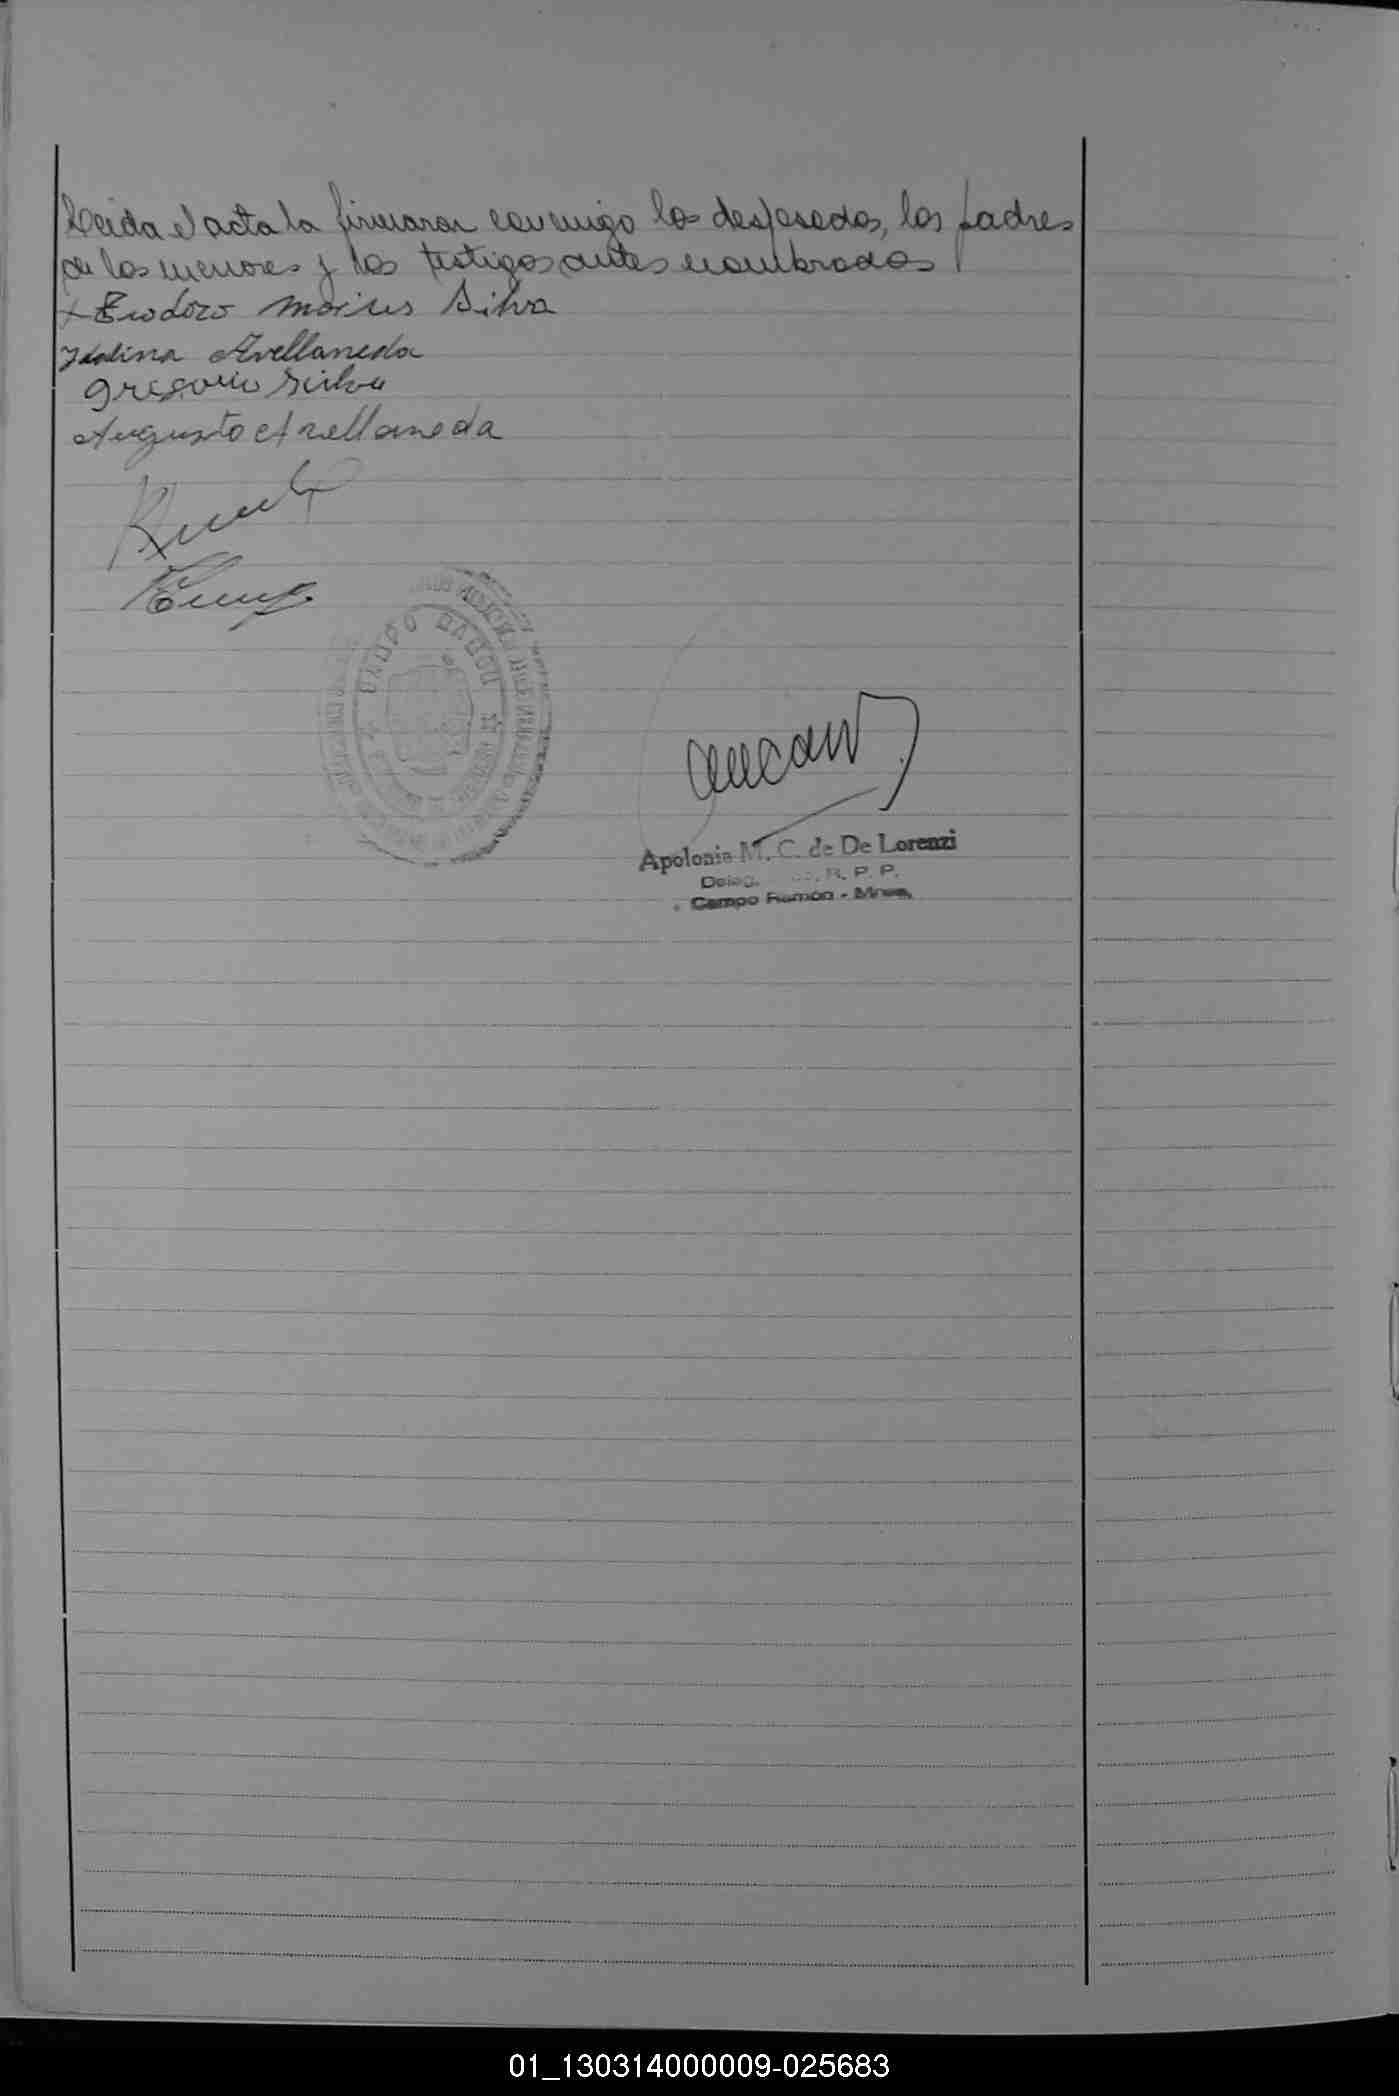 Leida el acta la firmaron conmigo los desposados, los padres
de los menores y los testigos antes nombrados
Teodoro Silva
Idalina Avellaneda
Gregorio Silva
Augusto Avellaneda
CAMPO RAMON
Apolonia M. C. de De Lorenzi
R. P. P.
Campo Ramón - Mnes.
01_130314000009-025683